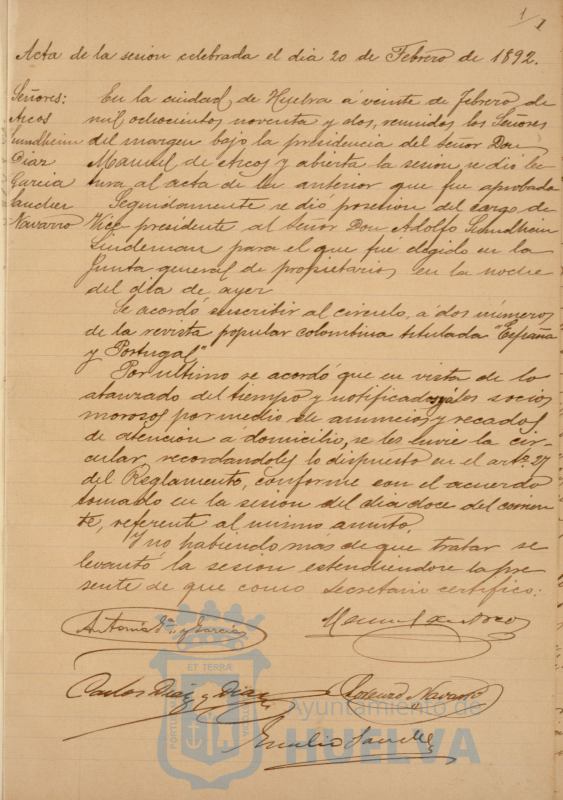 1/1
Acta de la sesion celebrada el dia 20 de Febrero de 1892.
Señores:
Arcos
Sundheim
Diaz
Garcia
Sanchez
Navarro
En la ciudad de Huelva á veinte de Febrero de
mil ochocientos noventa y dos, reunidos los Señores
del margen bajo la presidencia del Señor Don
Manuel de Arcos y abierta la sesion, se dió lec
tura al acta de la anterior que fue aprobada
Seguidamente se dió posesion del cargo de
Vice-presidente al Señor Don Adolfo Sundheim
Lindeman para el que fué elegido en la
Junta general de propietarios en la noche
del dia de ayer
Se acordó suscribir al circulo, á dos números
de la revista popular colombina titulada "España
y Portugal"
Por ultimo se acordó que en vista de lo
abanzado del tiempo y notificados yá los socios
morosos por medio de anuncios y recados
de atencion á domicilio, se les envie la cir-
cular, recordandoles lo dispuesto en el artº 27
del Reglamento, conforme con el acuerdo
tomado en la sesion del dia doce del corrien
te, referente al mismo asunto.
Y no habiendo más de que tratar se
levantó la sesion estendiendose la pre
sente de que como Secretario certifico:
Antonio Gª y Garcia
Manuel de Arcos
Carlos Diaz y Diaz
Lorenzo Navarro
Emilio Sanchez
ET TERRÆ
Ayuntamiento de
HUELVA